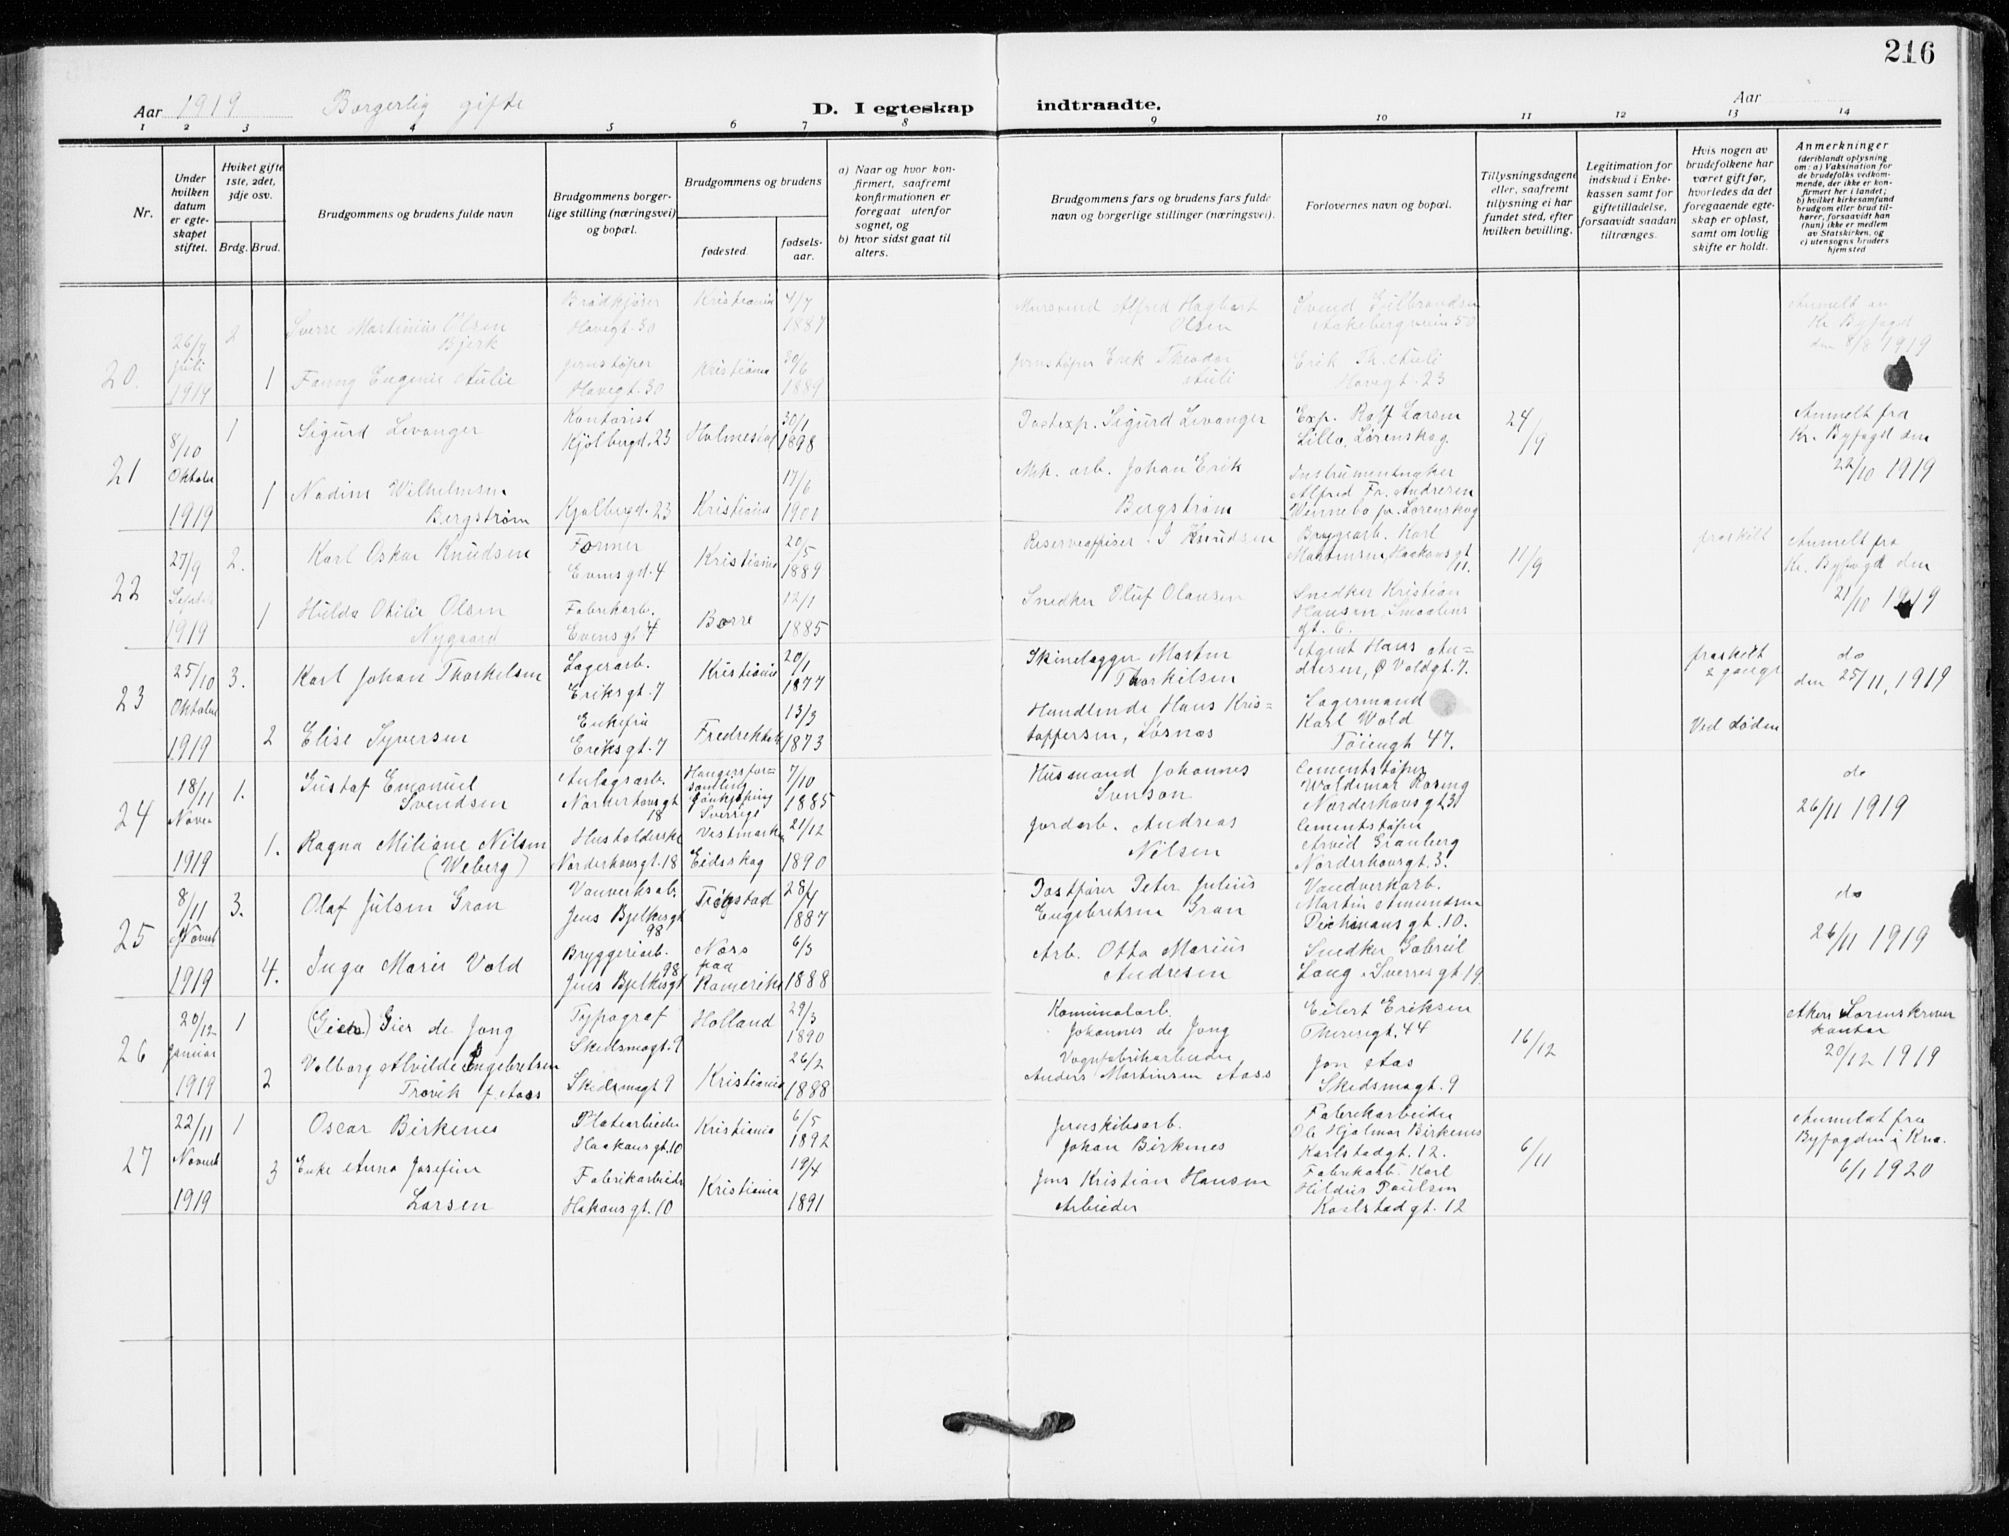 216
Aar 1919 Borgerlig gifte D. I egteskap indtraadte. Aar
1 2 3 4 5 6 7 8 9 10 11 12 13 14
Nr.
Under hvilken datum er egteskapet stiftet.
Hvilket gifte 1ste, 2det, 3dje osv.
Brdg. Brud.
Brudgommens og brudens fulde navn
Brudgommens borgerlige stilling (næringsvei) og bopæl.
Brudgommens og brudens
fødested.
fødselsaar.
a) Naar og hvor konfirmert, saafremt konfirmationen er foregaat utenfor sognet, og
b) hvor sidst gaat til alters.
Brudgommens fars og brudens fars fulde navn og borgerlige stillinger (næringsvei).
Forlovernes navn og bopæl.
Tillysningsdagene eller, saafremt tillysning ei har fundet sted, efter hvilken bevilling.
Legitimation for indskud i Enkekassen samt for giftetilladelse, forsaavidt saadan tiltrænges.
Hvis nogen av brudefolkene har været gift før, hvorledes da det foregaaende egteskap er opløst, samt om lovlig skifte er holdt.
Anmerkninger
(deriblandt oplysning om: a) Vaksination for de brudefolks vedkommende, der ikke er konfirmert her i landet; b) hvilket kirkesamfund brudgom eller brud tilhører, forsaavidt han (hun) ikke er medlem av Statskirken, og c) utensogns bruders hjemsted
20. 26/7 Juli 1919 2 Sverre Martinius Olsen Bjerk Brødkjører Havegt. 30 Kristiania 4/7 1887 Alfred Hagbart Olsen Svend 50 Anmelt av Kr. Byfogd den 8/8 1919
1 Fanny Eugenie Aulie Jernstøper Havegt. 30 Kristiania 30/6 1889 Jernstøper Erik Theodor Auli Erik Th. Auli Havegt. 23
21 8/10 Oktober 1919 1 Sigurd Levanger Kontorist Kjølbergd. 23 Holmestad 30/1 1898 Postexp. Sigurd Levanger Exp. Rolf Larsen Lillo, Lørenskog. 24/9 Anmelt fra Kr. Byfogd den 22/10 1919
1 Wilhelmsen Bergstrøm Kjølbergd. 23 Kristiania 17/6 1900 Mek. arb. Johan Erik Bergstrøm Alfred Fr. Andresen Lørenskog
22 27/9 1919 2. Karl Oskar Knudsen Former Evensgd. 4 Kristiania 20/5 1889 Reserveoffiser J Knudsen Bryggarb. Karl Martinsen, Haakonsgt 11. 11/9 fraskilt Anmelt fra Kr. Byfogd den 21/10 1919
1 Hulda Otilie Olsen Nygaard Fabrikarb. Evensgt 4 Borre 12/1 1885 Snedker Oluf Olausen Snedker Kristian Hansen, Smaalens gt. 6.
23 25/10 Oktober 1919 3. Karl Johan Thorkelsen Lagerarb. Eriksgt. 7 Kristiania 20/1 1877 Skindlegger Martin Thorkilsen Agent Hans Andresen, Ø Voldgt. 7. fraskilt 2 gange do den 25/11, 1919
2 Elise Syversen Enkefru Eriksgt. 7 13/3 1873 Handlende Hans Kristoffersen, Løsnæs Lagermand Karl Wold Tøiengt 47. Ved døden
24 18/11 Novem 1919 1. Gustaf Emanuel Svendsen Anlægsarb. Norderhovsgt 18 samling Jönkjöping Sverrige 7/10 1885 Husmand Johannes Svenson Cementstøper Waldemar Rosing Norderhovsgt 3 do 26/11 1919
1. Ragna Miliane Nilsen (Weberg) Norderhovsgt. 18 Vestmarka Eidsskog 21/12 1890 Jordarb. Andreas Nilsen Cementstøper Arvid Granberg Norderhovsgt. 3.
25 8/11 Novemb 1919 3. Olaf Julsen Gran Jens Bjelkesgt 98 Trøgstad 28/4 1887 Postfører Peter Julius Engebretsen Gran Vandverkarb. Martin Amundsen gt. 10. do 26/11 1919
4. Inga Marie Vold Bryggeriarb. Jens Bjelkesgt 98 Næs paa Romerike 6/3 1888 Arb. Otto Marius Andresen Snedker Gabriel Lang, Sverresgt 19.
26 20/12 Januar 1919 1 Gier de Jong Typograf Skedsmogt. 9 Holland 29/3 1890 Komunalarb. Johannes de Jong Eilert Eriksen Theresgt. 44 16/12 Akers Sorenskriverkontor 20/12 1919
2 Valborg Alvilde Engebretsen Trovik f. Aass Skedsmogt 9 Kristiania 26/2 1888 Vognfabrikarbeider Anders Martinsen Aass Jon Aas Skedsmogt. 9
27 22/11 Novemb 1919 1 Oscar Birkenes Platearbeider Haakonsgt. 10 Kristiania 6/5 1892 Johan Birkenes Fabrikarbeider Ole Hjalmar Birkenes Karlstadgt. 12. 6/11 Anmeldt fra Byfogden i Kra. 6/1 1920
3 Enke Anna Josefine Larsen Fabrikarbeider Hakonsgt. 10 Kristiania 19/4 1891 Jens Kristian Hansen Arbeider Fabrikarb. Karl Hildus Paulsen Karlstadgt. 12